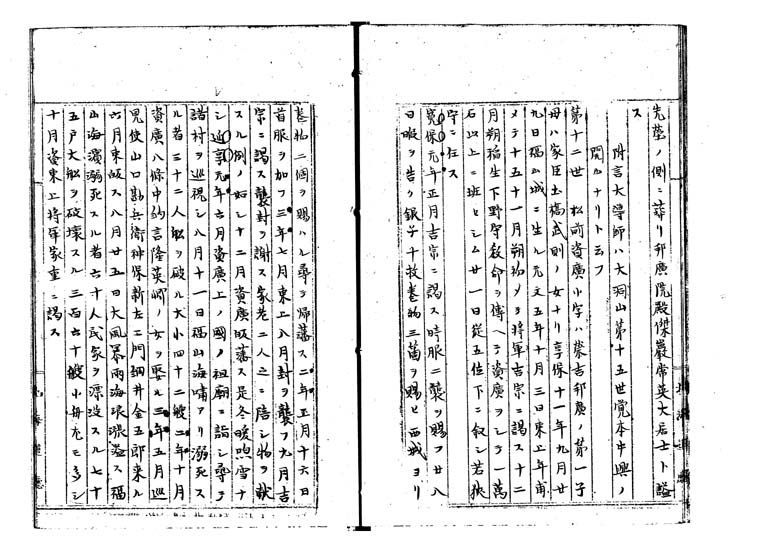 先塋ノ側ニ葬リ邦廣院殿傑巖常英大居士ト諡
ス
附言大導師ハ大洞山第十五世覚本中興ノ
開山ナリト云フ
第十二世松前資廣小字ハ襲吉邦廣ノ第一子
母ハ家臣土橋武則ノ女ナリ享保十一年九月廿
九日福山城ニ生ル元文五年十月三日東上年甫
メテ十五十一月朔始メテ将軍吉宗ニ謁ス十二
月朔稲生下野守叙命ヲ傳ヘテ資廣ヲシテ一萬
石以上ニ班セシム廿一日從五位下ニ叙シ若狹
守ニ任ス
寛保元年正月吉宗ニ謁ス時服二襲ヲ賜フ廿八
日暇ヲ告ク銀子十枚巻物三箇ヲ賜ヒ西城ヨリ
巻物二個ヲ賜ハル尋テ帰藩ス二年正月十六日
首服ヲ加フ三年七月東上八月封ヲ襲フ九月吉
宗ニ謁ス襲封ヲ謝ス家老二人之ニ陪シ物ヲ献
スル例ノ如シ十二月資廣皈藩ス是冬暖喣雪ナ
シ延享元年六月資廣上ノ國ノ祖廟ニ詣シ尋テ
諸村ヲ巡視シ八月十一日福山海嘯アリ溺死ス
ル者三十二人舩ヲ破ル大小四十二艘二年十月
資廣八條中納言隆英卿ノ女ヲ娶ル三年五月巡
見使山口勘兵衛神保新左エ門細井金五郎来ル
六月東皈ス八月廿五日大風暴雨海浪漲溢ス福
山海濱溺死スル者六十人民家ヲ漂没スル七十
五戸大舩ヲ破壊スル三百六十艘小舟尤モ多シ
十月資東上将軍家重ニ謁ス